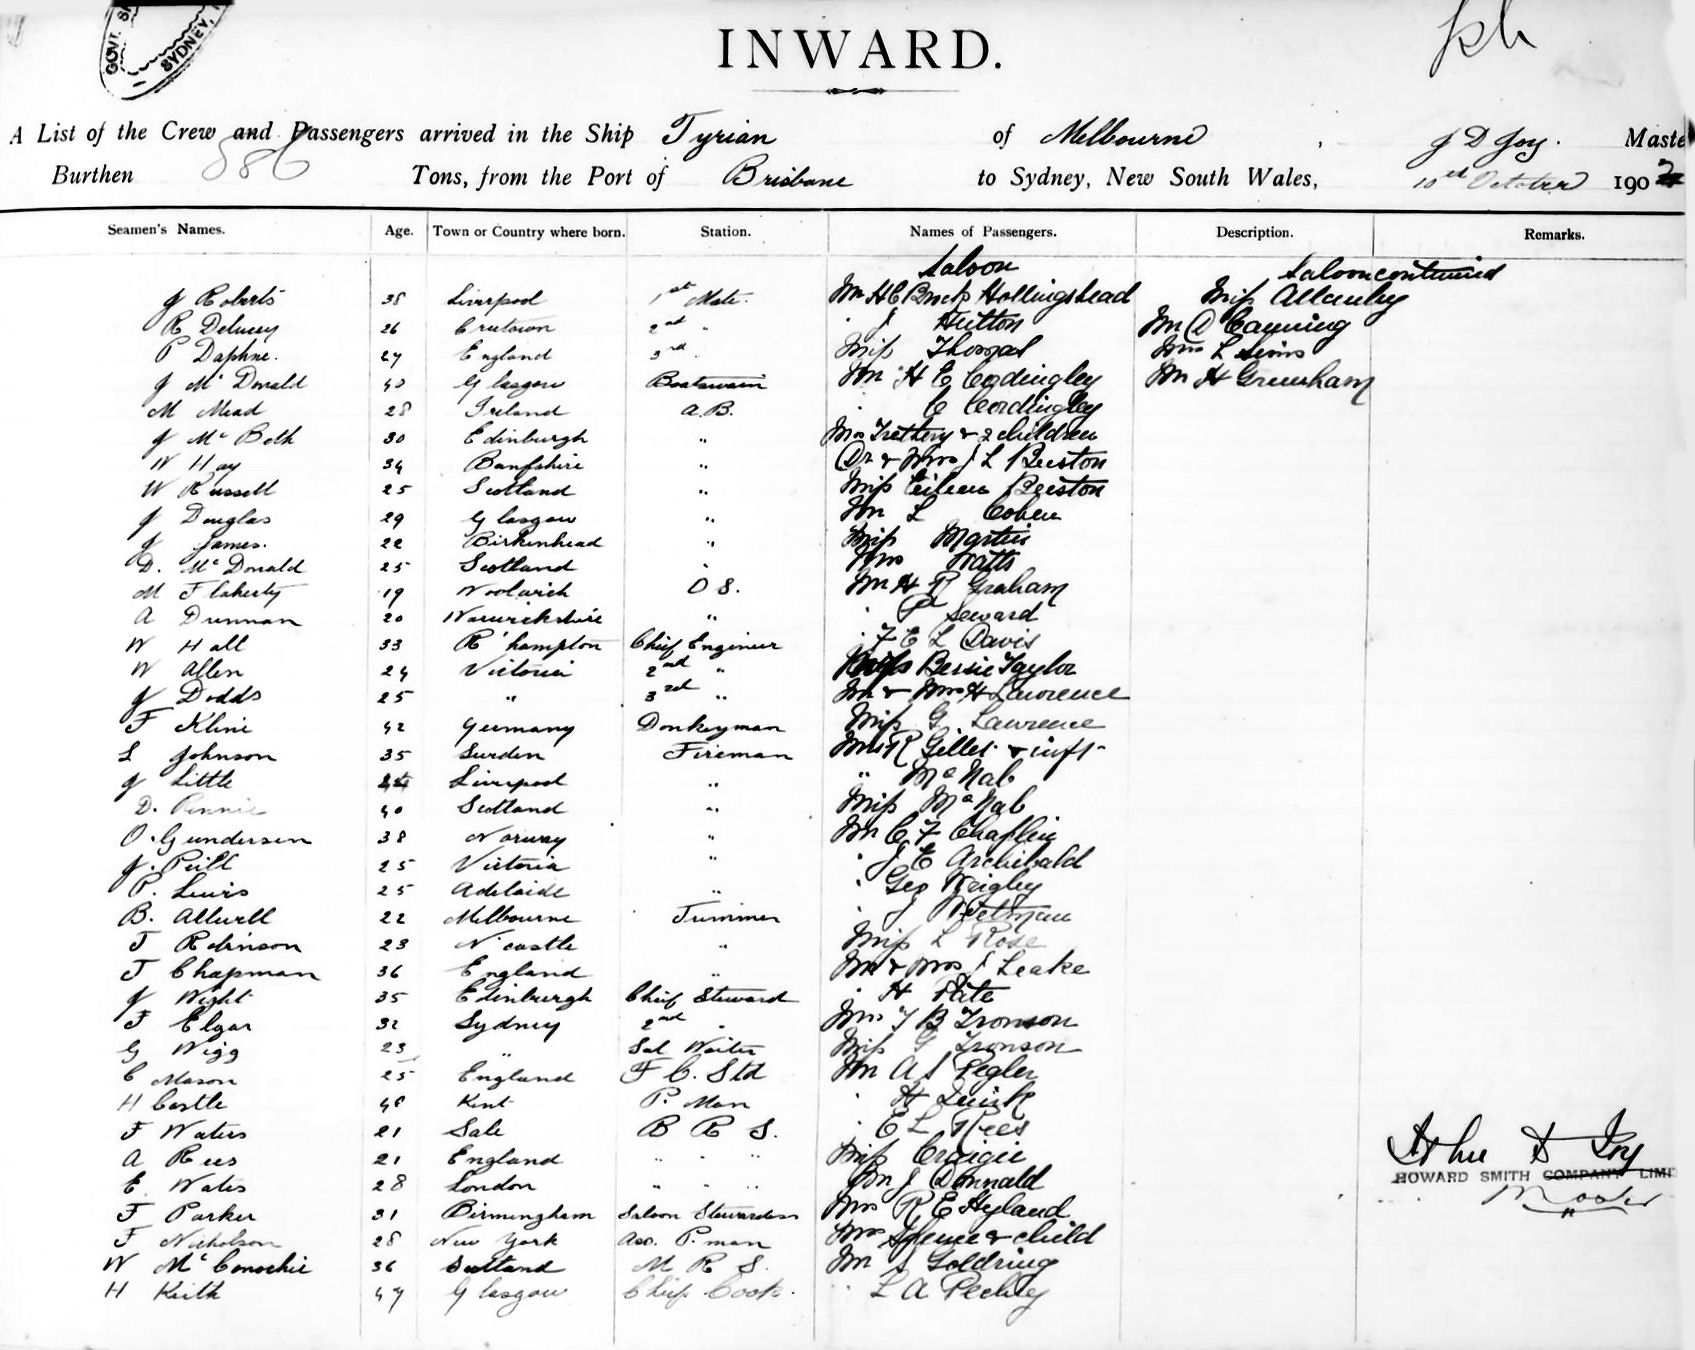 GOVT. SYDNEY,
INWARD.
A List of the Crew and Passengers arrived in the Ship Tyrian of Melbourne, J D Joy. Maste
Burthen 886 Tons, from the Port of Brisbane to Sydney, New South Wales, 10th October 1902
Seamen's Names. Age. Town or Country where born. Station. Names of Passengers. Description. Remarks.
Saloon Saloon continued
J Roberts 38 Liverpool 1st Mate. Mr H C Hollingshead Miss Allanby
R Delaney 26 2nd " " J Hutton Mr A Canning
P Daphne. 27 England 3rd " Miss Thomas Mrs L Sims
J McDonald 40 Glasgow Boatswain Mr H E Cordingley Mr H Greenham
M Mead 28 Ireland A.B. " C Cordingley
J McBeth 30 Edinburgh " Mrs Trethery & 2 children
W Hay 34 Banfshire " Dr & Mrs J L Beeston
W Russell 25 Scotland " Miss Eileen Beeston
J Douglas 29 Glasgow " Mr L Cohen
J James. 22 Birkenhead " Miss Martin
D. McDonald 25 Scotland " Mrs Watts
M Flaherty 19 Woolwich O S. Mr H R Graham
A Dunnan 20 Warwickshire " " Seward
W Hall 33 R'hampton Chief Engineer " F E L Davis
W Allen 24 Victoria 2nd " Miss Bessie Taylor
J Dodds 25 " 3rd " Mr & Mrs H Lawrence
F Kline 42 Germany Donkeyman Miss G Lawrence
L Johnson 35 Sweden Fireman Mrs R Gillet & inft
J Little Liverpool " " McNab
D. Rennie 40 Scotland " Miss McNab
O. Gundersen 38 Norway " Mr C F Chaplin
J. Pill 25 Victoria " " J E Archibald
P. Lewis 25 Adelaide " " Geo Weigley
B. Allwell 22 Melbourne Trimmer " J
T Robinson 23 N'castle " Miss L Rose
T Chapman 36 England " Mr & Mrs J Leake
J Wight 35 Edinburgh Chief Steward " H Pate
F Elgar 32 Sydney 2nd " Mrs T B Tronson
G Wigg 23 " Sal Waiter Miss G Tronson
C Mason 25 England F C. Std Mr A S Pegler
H Castle 48 Kent P. Man " H Quirk
F Waters 21 Sale B R S. " E L Rees
A Rees 21 England " " " Miss Craigie
E. Wates 28 London " " " Mr J Donnald
F Parker 31 Birmingham Saloon Stewardess Mrs R E Hyland
F Nicholson 28 New York Ass. P. man Mrs Spence & child
W McConochie 36 Scotland M R S. Mr S Goldring
H Keith 47 Glasgow Chief Cook. " L A Pechey
Arthur D Joy
HOWARD SMITH COMPANY LIMI
Master